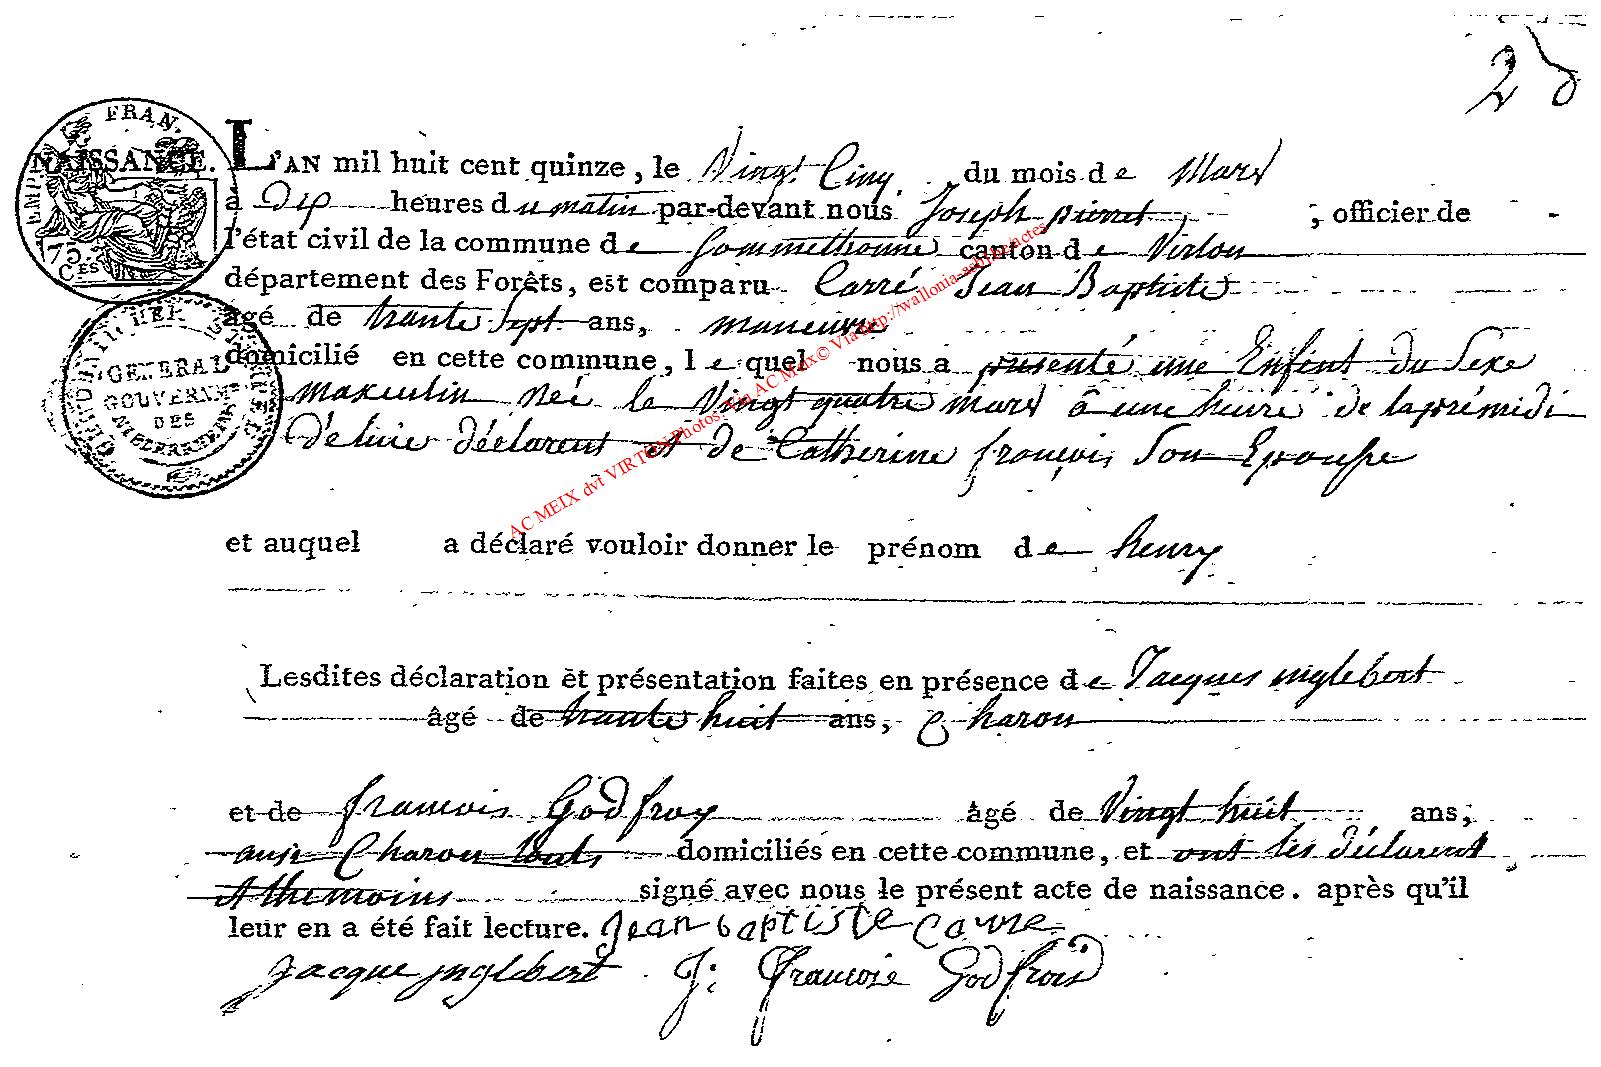 2
EMP FRAN.
75 Ces
GENERAL
GOUVERNt
DES
NAISSANCE. L'AN mil huit cent quinze, le Vingt Cinq. du mois de Mars
à Dix heures du matin par-devant nous Joseph pierret, ; officier de
l'état civil de la commune de Sommethonne canton de Virton
département des Forêts, est comparu Carré Jean Baptiste
âgé de trante Sept ans, maneuvre
domicilié en cette commune, le quel nous a presenté une Enfent du Sexe
masculin née le Vingt quatre mars à une heure de laprémidi
De luie déclarent et de Catherine françois Son Epousse
et auquel a déclaré vouloir donner le prénom de henry
Lesdites déclaration et présentation faites en présence de Jacques inglebert
âgé de trante huit ans, Charon
et de francois Godfroy âgé de Vingt huit ans,
ausi Charon touts domiciliés en cette commune, et ont les déclarent
et themoins signé avec nous le présent acte de naissance. après qu'il
leur en a été fait lecture. jean baptiste carre
Jacque inglebert J: francois Godfrois
AC MEIX dvt VIRTON Photos AC Meix© Via http://wallonia-